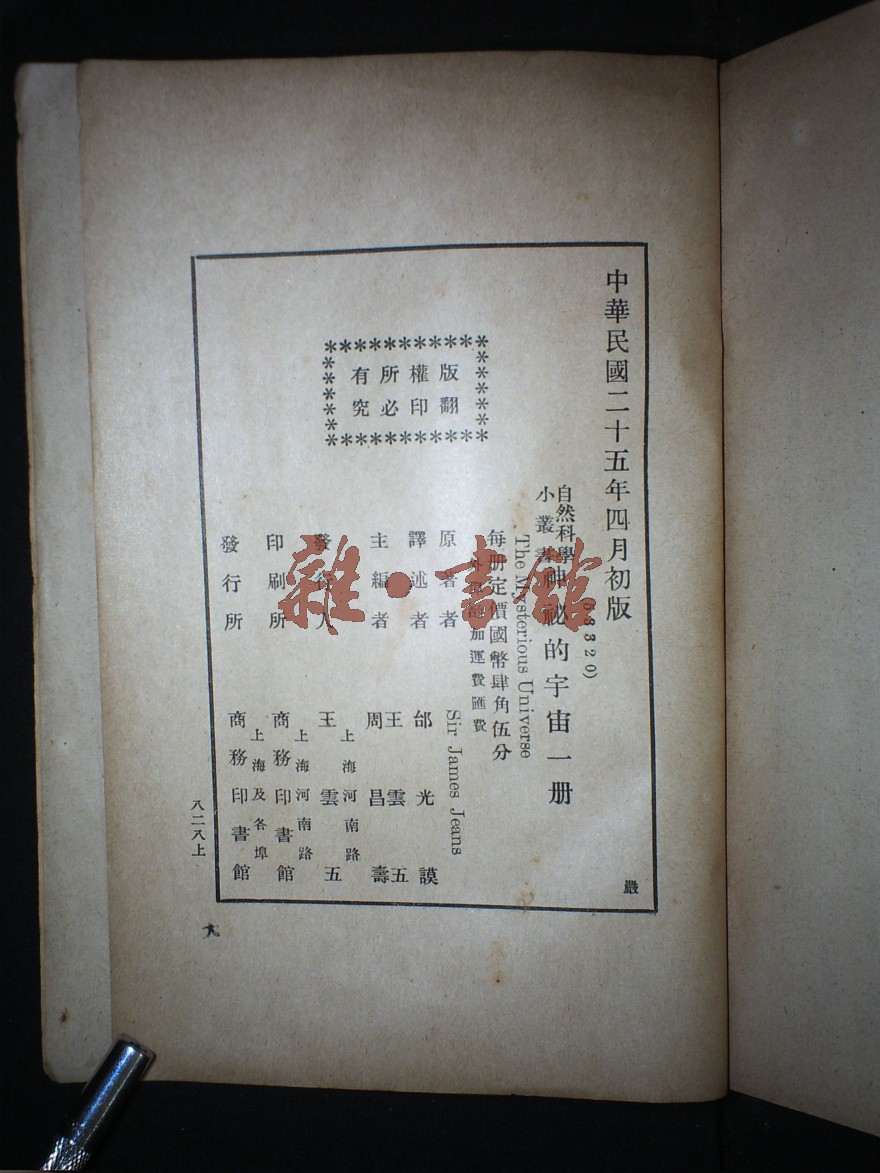 中華民國二十五年四月初版
3320)
自然科學
小叢書
神祕的宇宙一册
The Mysterious Universe
每册定價國幣肆角伍分
加運費匯費
原著者 Sir James Jeans
譯述者 邰光謨
主編者 王雲五
周昌壽
發行人 王雲五
上海河南路
印刷所 商務印書館
上海河南路
發行所 商務印書館
上海及各埠
版權所有
翻印必究
嚴
八二八上
雜·書館